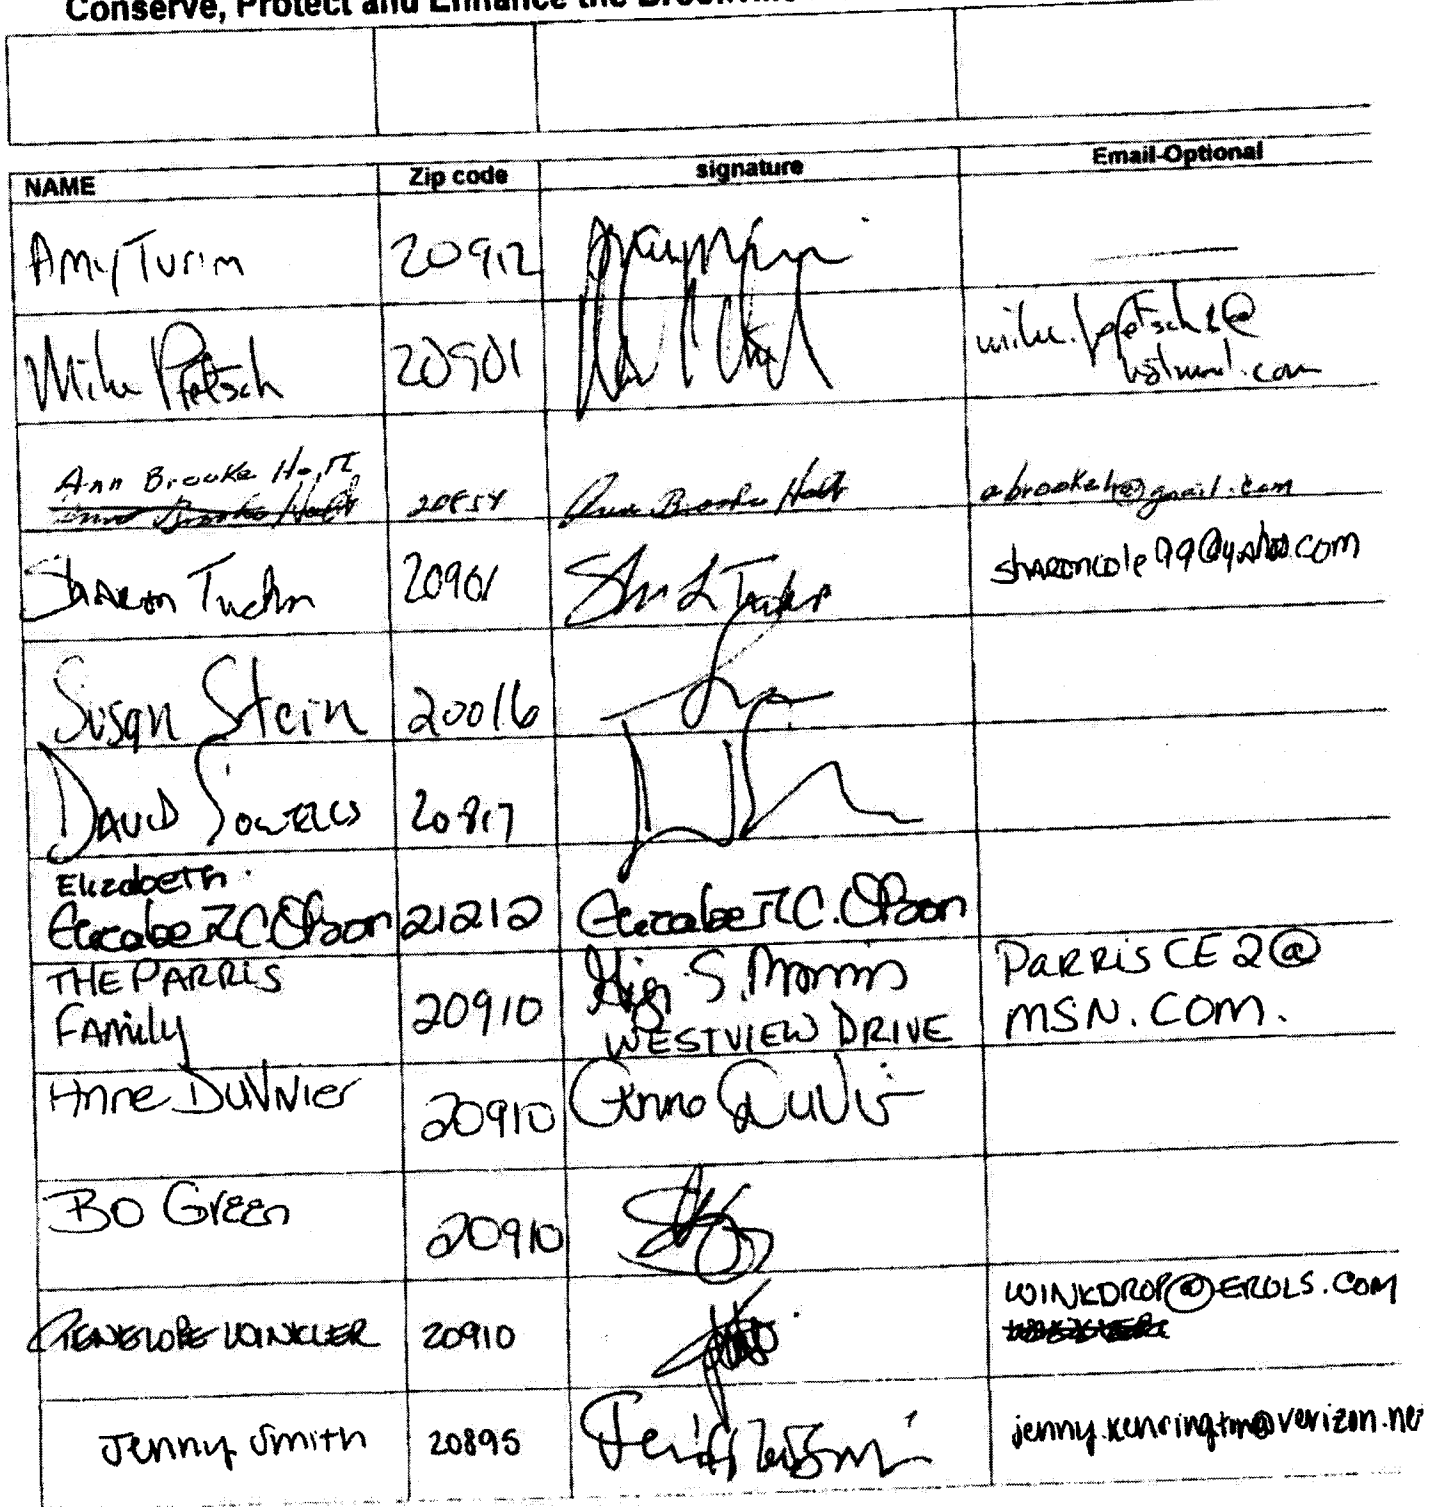 Conserve, Protect and Enhance the
NAME Zip code signature Email-Optional
Amy Turim 20912
Mike Pfetsch 20901 mike.pfetsch1@
hotmail.com
Ann Brooke Holt
Ann Brooke Holt 20854 Ann Brooke Holt abrookeh@gmail.com
Sharon 20901 sharoncole99@yahoo.com
Susan Stein 20016
David Sowells 20817
Elizabeth
Elizabeth C. Olson 21212 Elizabeth C. Olson
THE PARRIS S. Morris PARRISCE2@
FAMily 20910 WESTVIEW DRIVE MSN.COM.
Anne DuVivier 20910 Anne
BO Green 20910
PENELOPE WINKLER 20910 WINKDROP@EROLS.COM
Jenny Smith 20895 jenny.kenrington@verizon.net